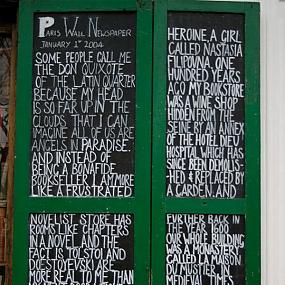 PARIS WALL NEWSPAPER
JANUARY 1ST 2004
SOME PEOPLE CALL ME
THE DON QUIXOTE
OF THE LATIN QUARTER
BECAUSE MY HEAD
IS SO FAR UP IN THE
CLOUDS THAT I CAN
IMAGINE ALL OF US ARE
ANGELS IN PARADISE.
AND INSTEAD OF
BEING A BONAFIDE
BOOKSELLER I AM MORE
LIKE A FRUSTRATED
NOVELIST STORE HAS
ROOMS LIKE CHAPTERS
IN A NOVEL AND THE
FACT IS TOLSTOI AND
DOESTOYEVSKI ARE
MORE REAL TO ME THAN
HEROINE, A GIRL
CALLED NASTASIA
FILIPOVNA. ONE
HUNDRED YEARS
AGO MY BOOKSTORE
WAS A WINE SHOP
HIDDEN FROM THE
SEINE BY AN ANNEX
OF THE HOTEL DIEU
HOSPITAL WHICH HAS
SINCE BEEN DEMOLIS-
HED & REPLACED BY
A GARDEN. AND
FURTHER BACK IN
THE YEAR 1600
OUR WHOLE BUILDING
WAS A MONASTERY
CALLED LA MAISON
DU MUSTIER IN
MEDIEVAL TIMES